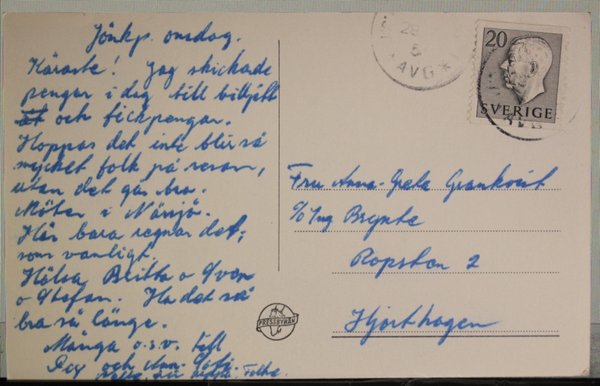 Jönkp. onsdag.
Käraste! Jag skickade
pengar i dag till biljett
och fickpengar.
Hoppas det inte blir så
mycket folk på resan,
utan det går bra.
Möter i Nässjö.
Här bara regnar det,
som vanligt.
Hälsa Britta o
o Stefan. Ha det så
bra så länge.
Många o.s.v. till
och
Folke.
28
5
AVG
20
SVERIGE
Fru Anna-Greta Grankvist
c/o Ing Brynte
Ropsten 2
Hjorthagen
PRESSBYRÅN